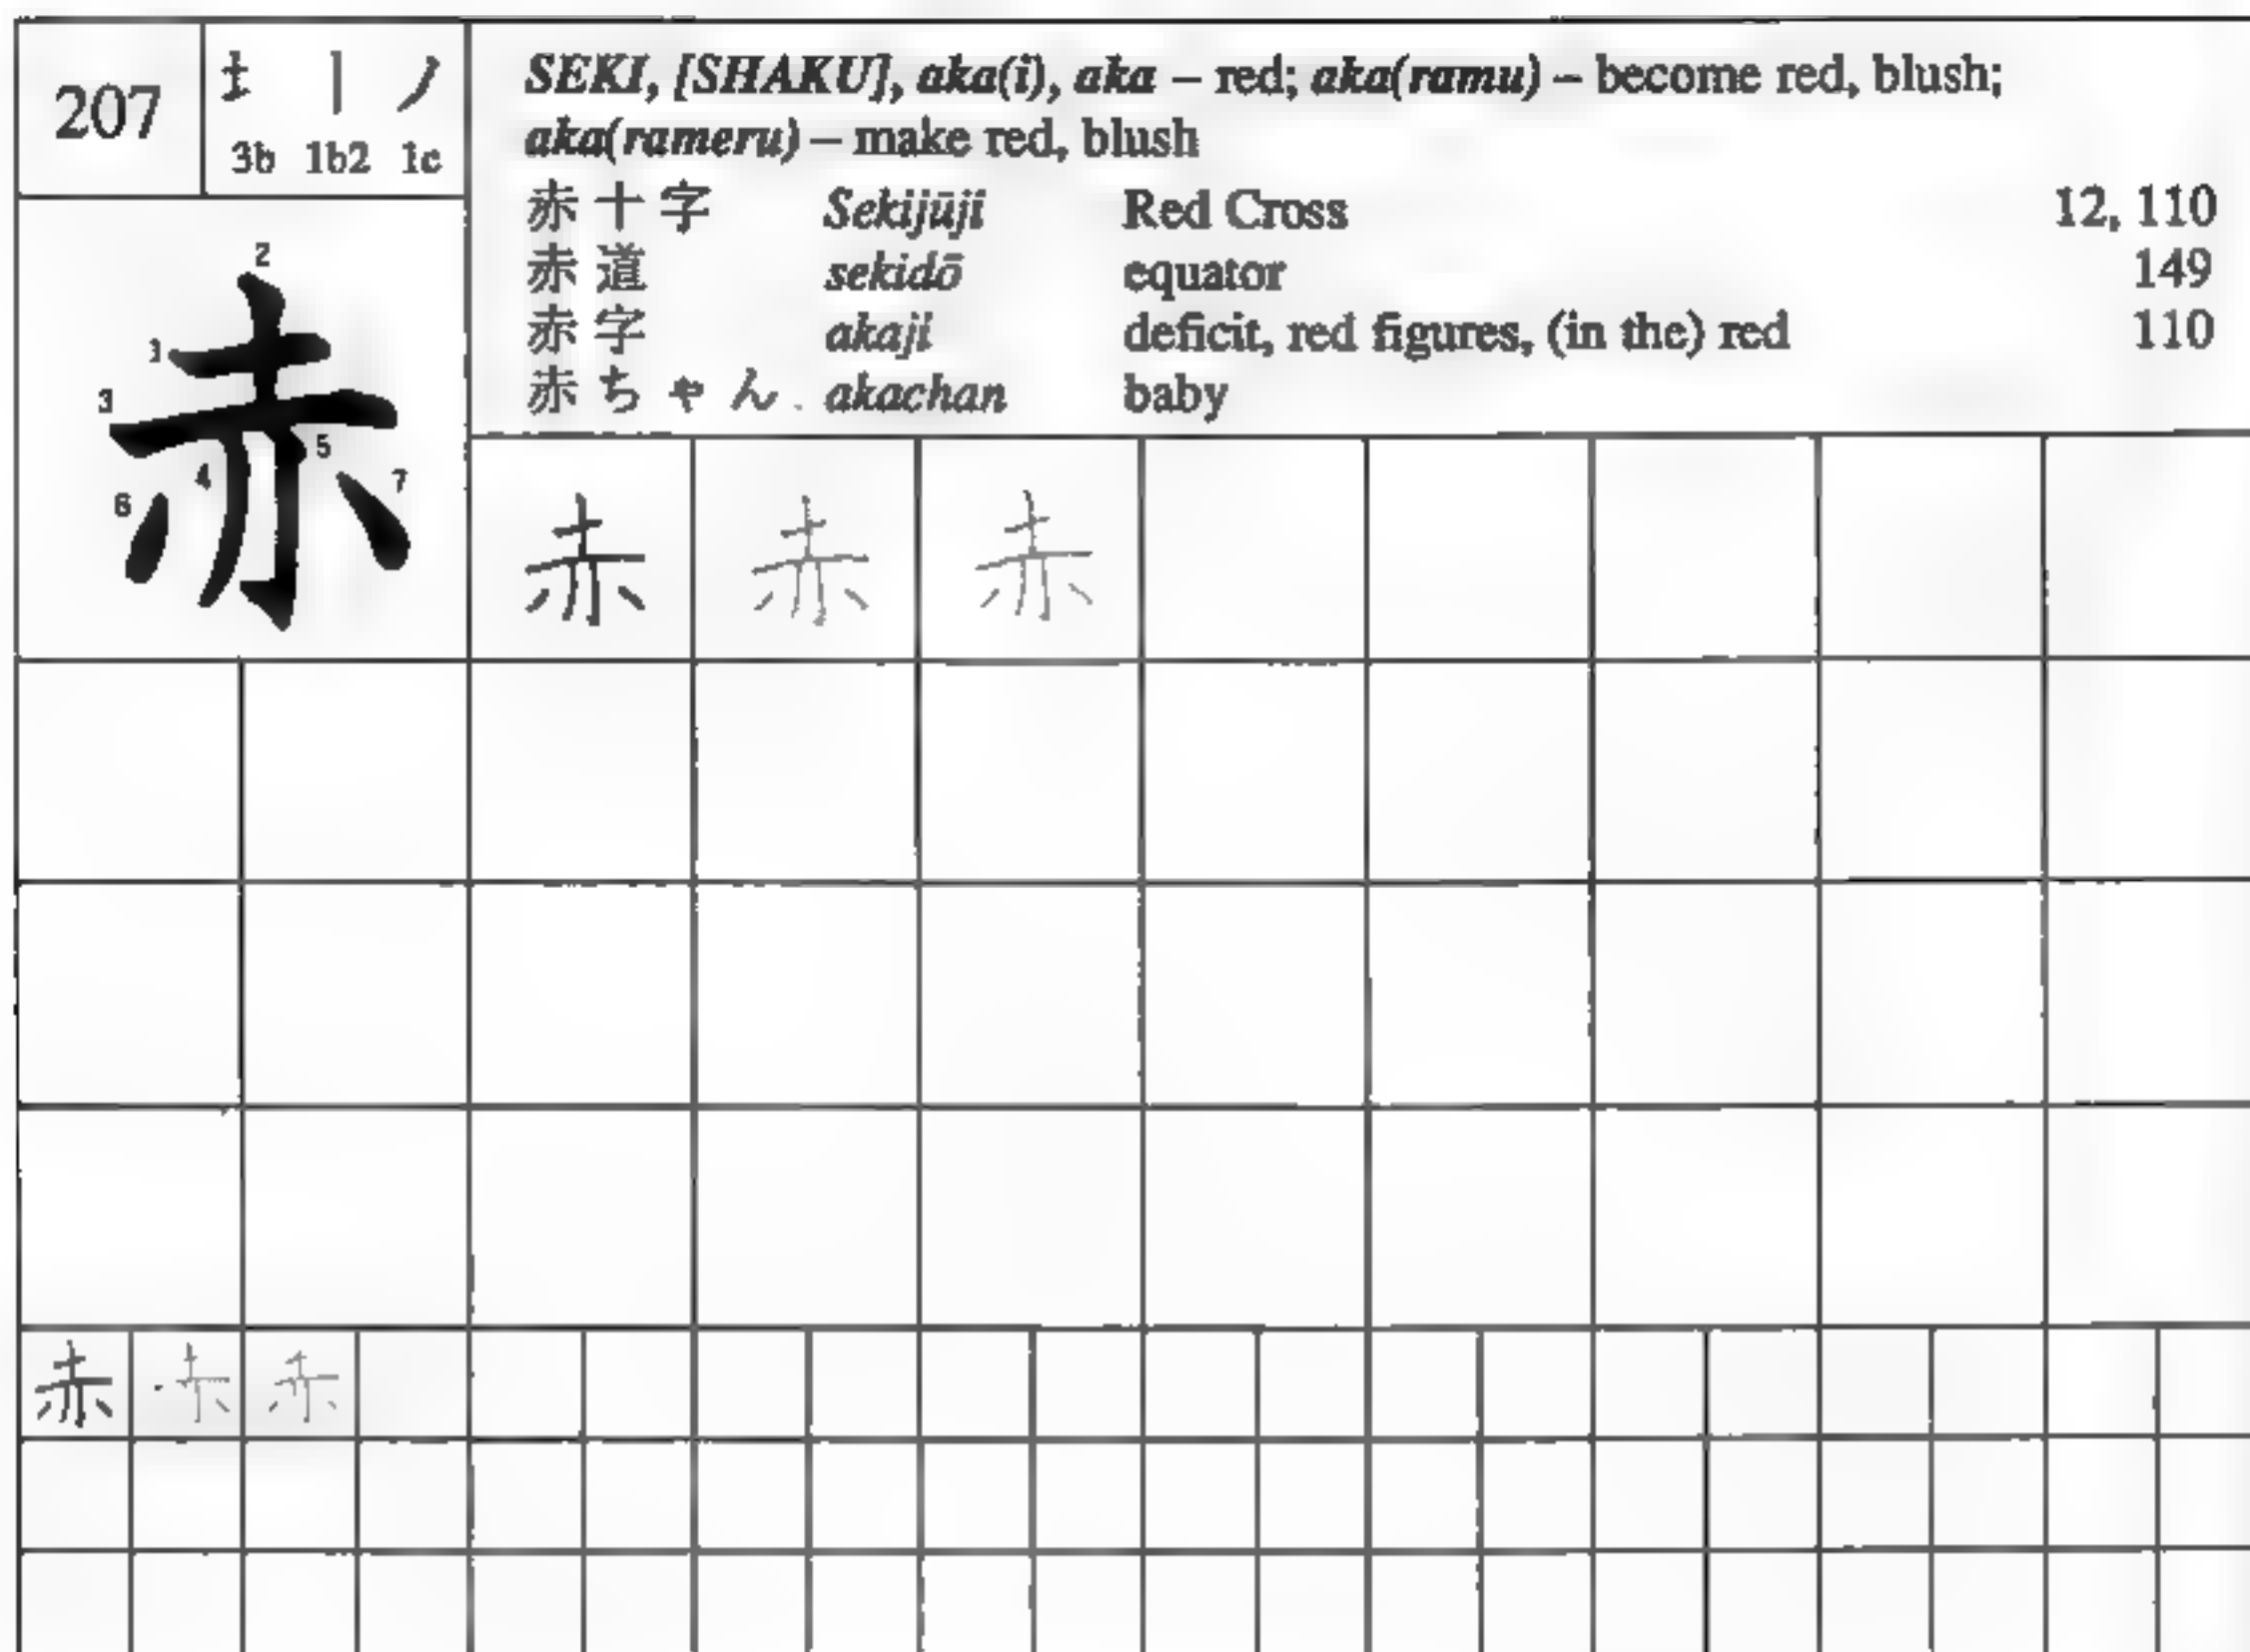 207
扌 | ノ
3b 1b2 1c
SEKI, [SHAKU], aka(i), aka – red; aka(ramu) – become red, blush;
aka(rameru) – make red, blush
赤十字 Sekijūji Red Cross 12, 110
赤道 sekidō equator 149
赤字 akaji deficit, red figures, (in the) red 110
赤ちゃん akachan baby
赤
1 2 3 4 5 6 7
赤 赤 赤
赤 赤 赤